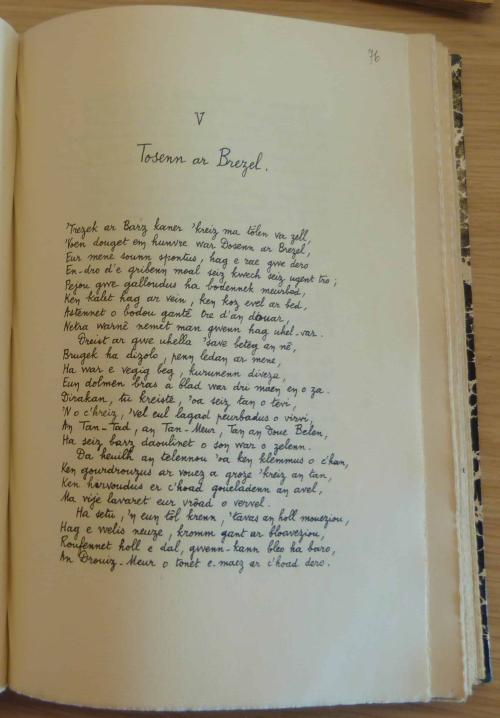 76
V
Tosenn ar Brezel.
'Trezek ar Barz kaner 'kreiz ma tôlen va zell,
'Voen douget em hunvre war Dosenn ar Brezel,
Eur mene sounn spontus, hag e rae gwe dero
En-dro d'e gribenn moal seiz kwech seiz ugent tro ;
Pejou gwe galloudus ha bodennek meurbed,
Ken kalet hag ar vein, ken koz evel ar bed,
Astennet o bodou gantê tre d'an douar,
Netra warnê nemet man gwenn hag uhel-var.
Dreist ar gwe uhella 'save beteg an nê,
Brugek ha dizolo, penn ledan ar mene,
Ha war e vegig beg, kurunenn diveza,
Eun dolmen bras a blad war dri maen en o za.
Dirakan, tu kreiste, 'oa seiz tan o tevi,
'N o c'hreiz, 'vel eul lagad peurbadus o virvi,
An Tan-Tad, an Tan-Meur, Tan an Doue Belen,
Ha seiz barz daoulinet o son war o zelenn.
Da heuilh an telennou 'oa ken klemmus o c'han,
Ken gourdrouzus ar vouez a groze 'kreiz an tan,
Ken hirvoudus er c'hoad goueladenn an avel,
Ma vije lavaret eur vrôad o vervel.
Ha setu, 'n eun tôl krenn, 'tavas an holl moueziou,
Hag e welis neuze, kromm gant ar bloaveziou,
Roufennet holl e dal, gwenn-kann bleo ha baro,
An Drouiz-Meur o tonet e-maez ar c'hoad dero.